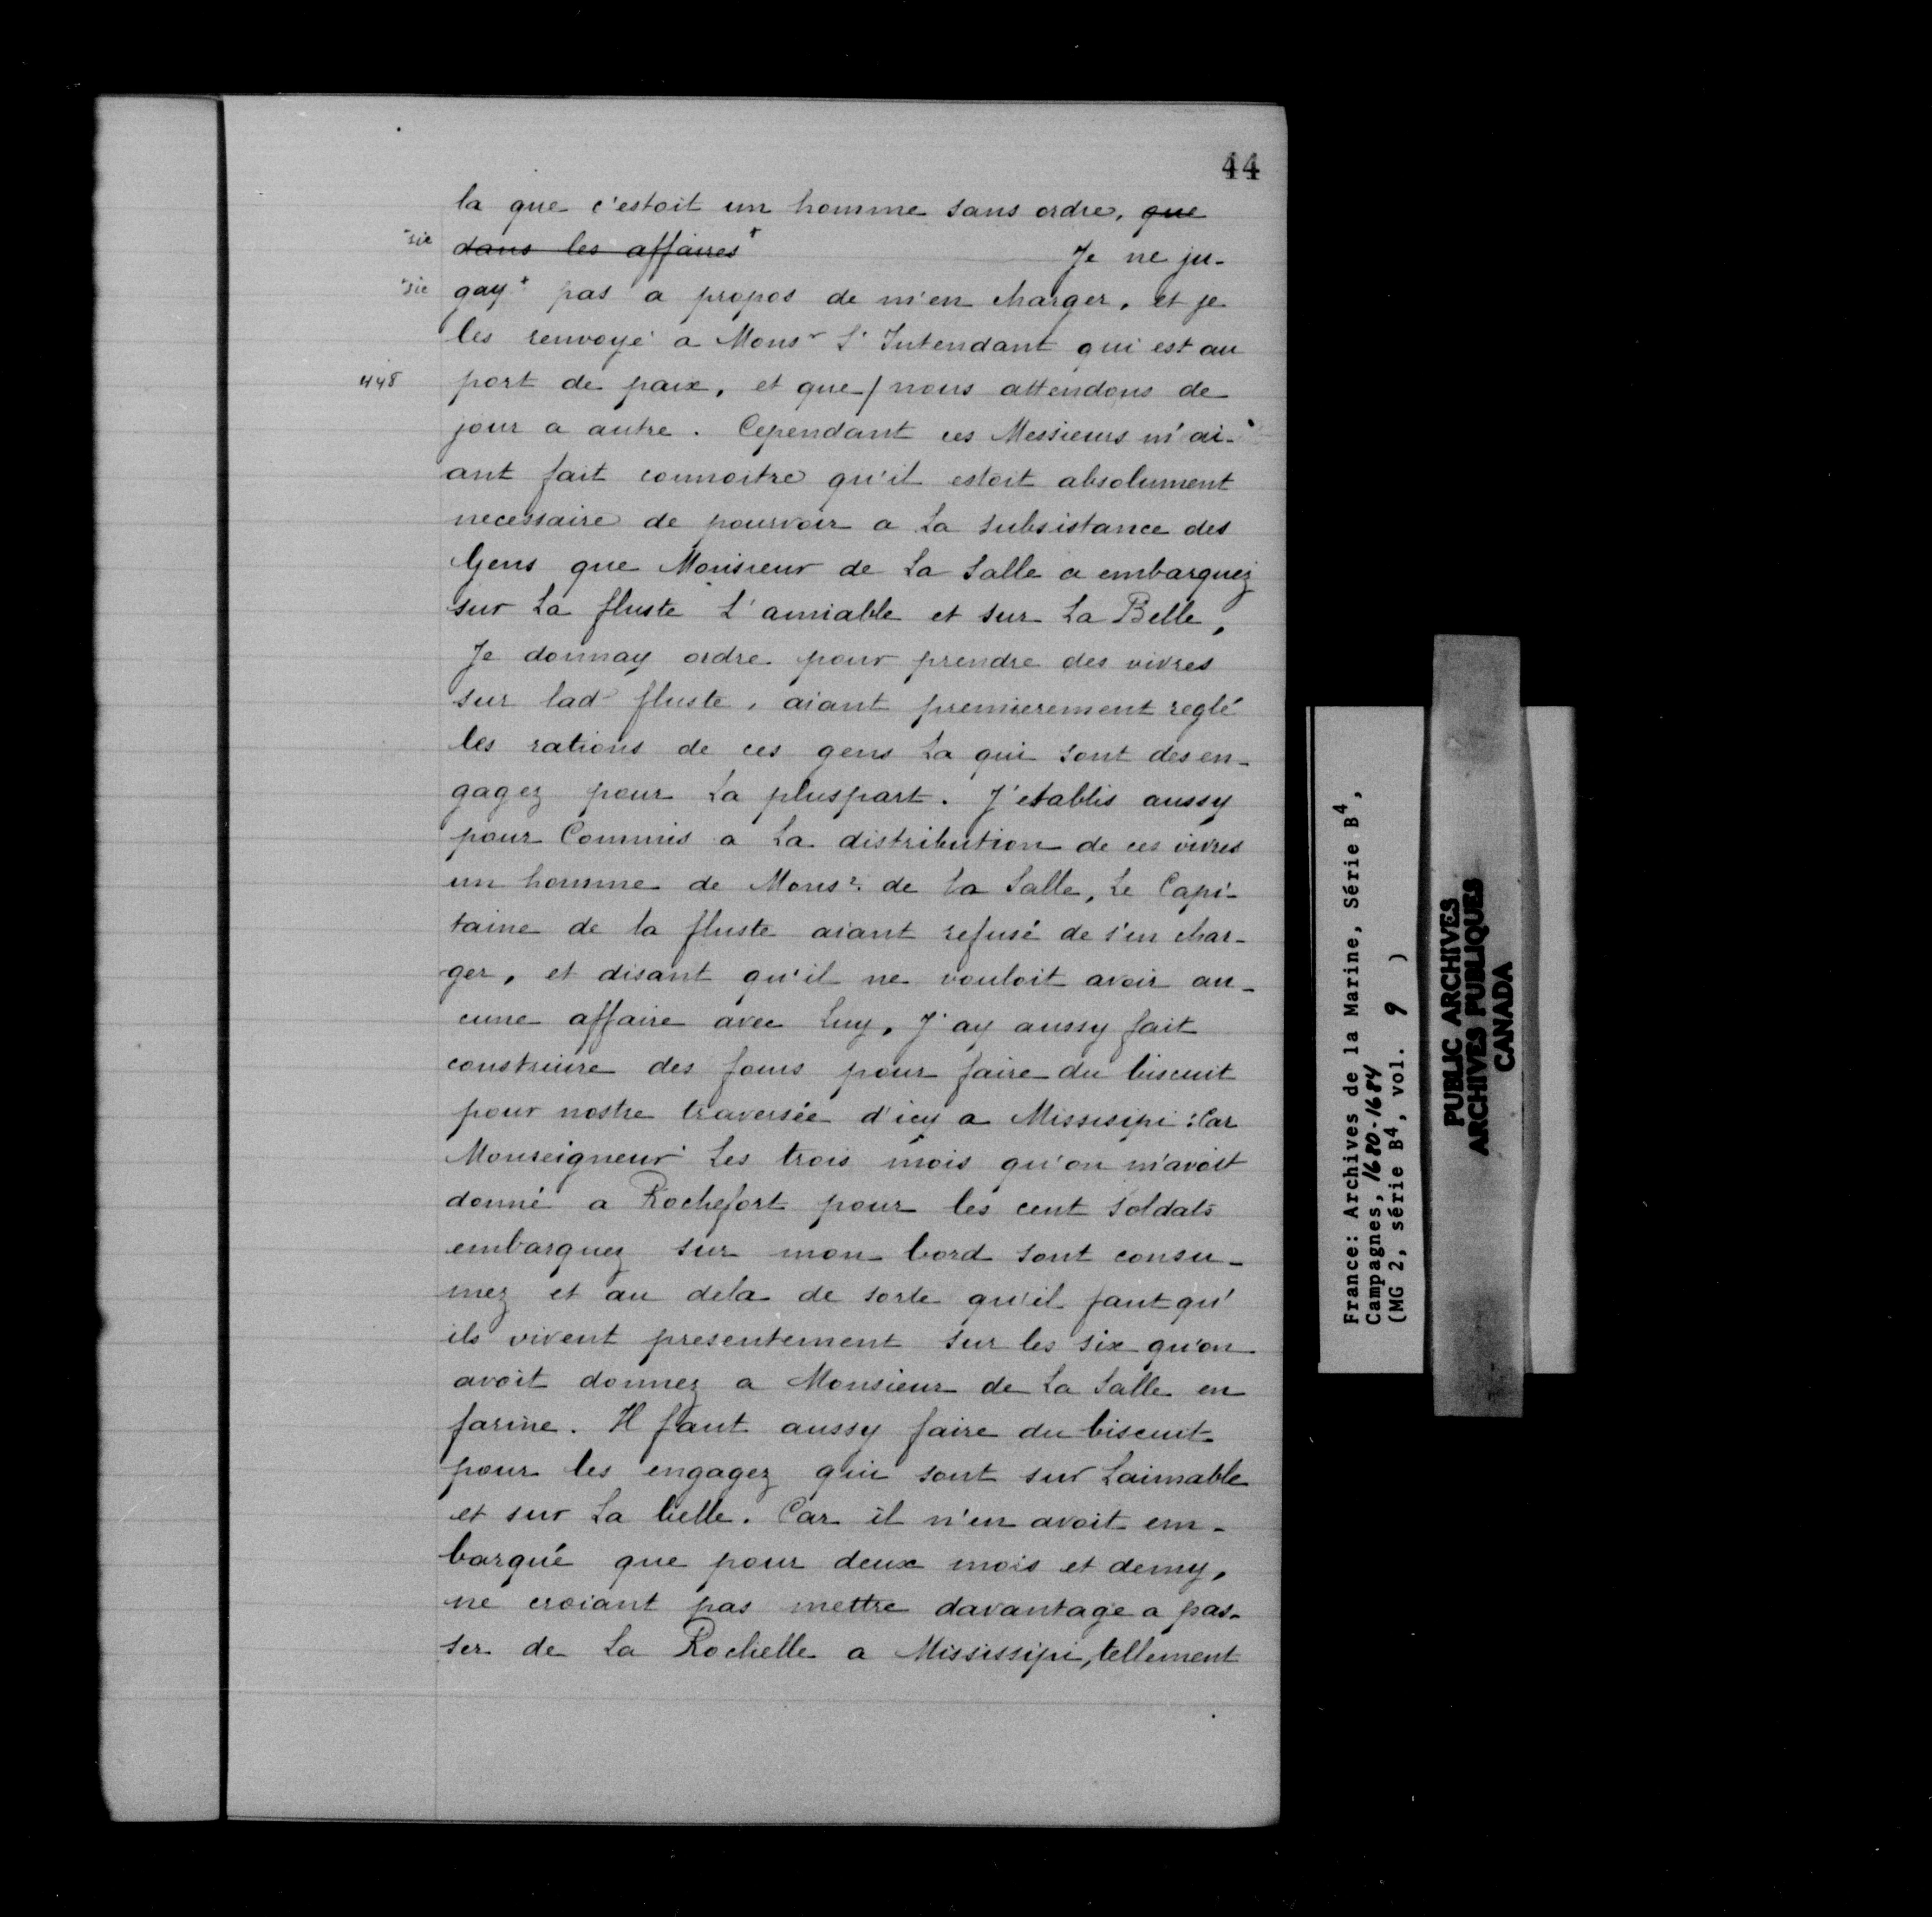 44
la que c'estoit un homme sans ordre, que
+sic dans les affaires+ Je ne ju-
+sic gay+ pas a propos de m'en charger, et je
les renvoyé a Monsr L'Intendant qui est au
448 port de paix, et que/nous attendons de
jour a autre. Cependant ces Messieurs m'ai-
ant fait connoitre qu'il estoit absolument
necessaire de pourvoir a La subsistance des
Gens que Monsieur de La Salle a embarquez
sur La fluste L'amiable et sur La Belle,
Je donnay ordre pour prendre des vivres
sur lad fluste, aiant premierement reglé
les rations de ces gens La qui sont des en-
gagez pour La pluspart. J'etablis aussy
pour Commis a La distribution de ces vivres
un homme de Monsr de La Salle, Le Capi-
taine de la fluste aiant refusé de s'en char-
ger, et disant qu'il ne vouloit avoir au-
cune affaire avec Luy, J'ay aussy fait
construire des fours pour faire du biscuit
pour nostre traversée d'icy a Missisipi: Car
Monseigneur Les trois mois qu'on m'avoit
donné a Rochefort pour les cent Soldats
embarquez sur mon bord sont consu-
mez et au dela de sorte qu'il faut qu'
ils vivent presentement sur les six qu'on
avoit donnez a Monsieur de La Salle en
farine. Il faut aussy faire du biscuit
pour les engagez qui sont sur Laimable
et sur La belle. Car il n'en avoit em-
barqué que pour deux mois et demy,
ne croiant pas mettre davantage a pas-
ser de La Rochelle a Mississipi, tellement
France: Archives de la Marine, Série B4,
Campagnes, 1680-1684
(MG 2, série B4, vol. 9 )
PUBLIC ARCHIVES
ARCHIVES PUBLIQUES
CANADA